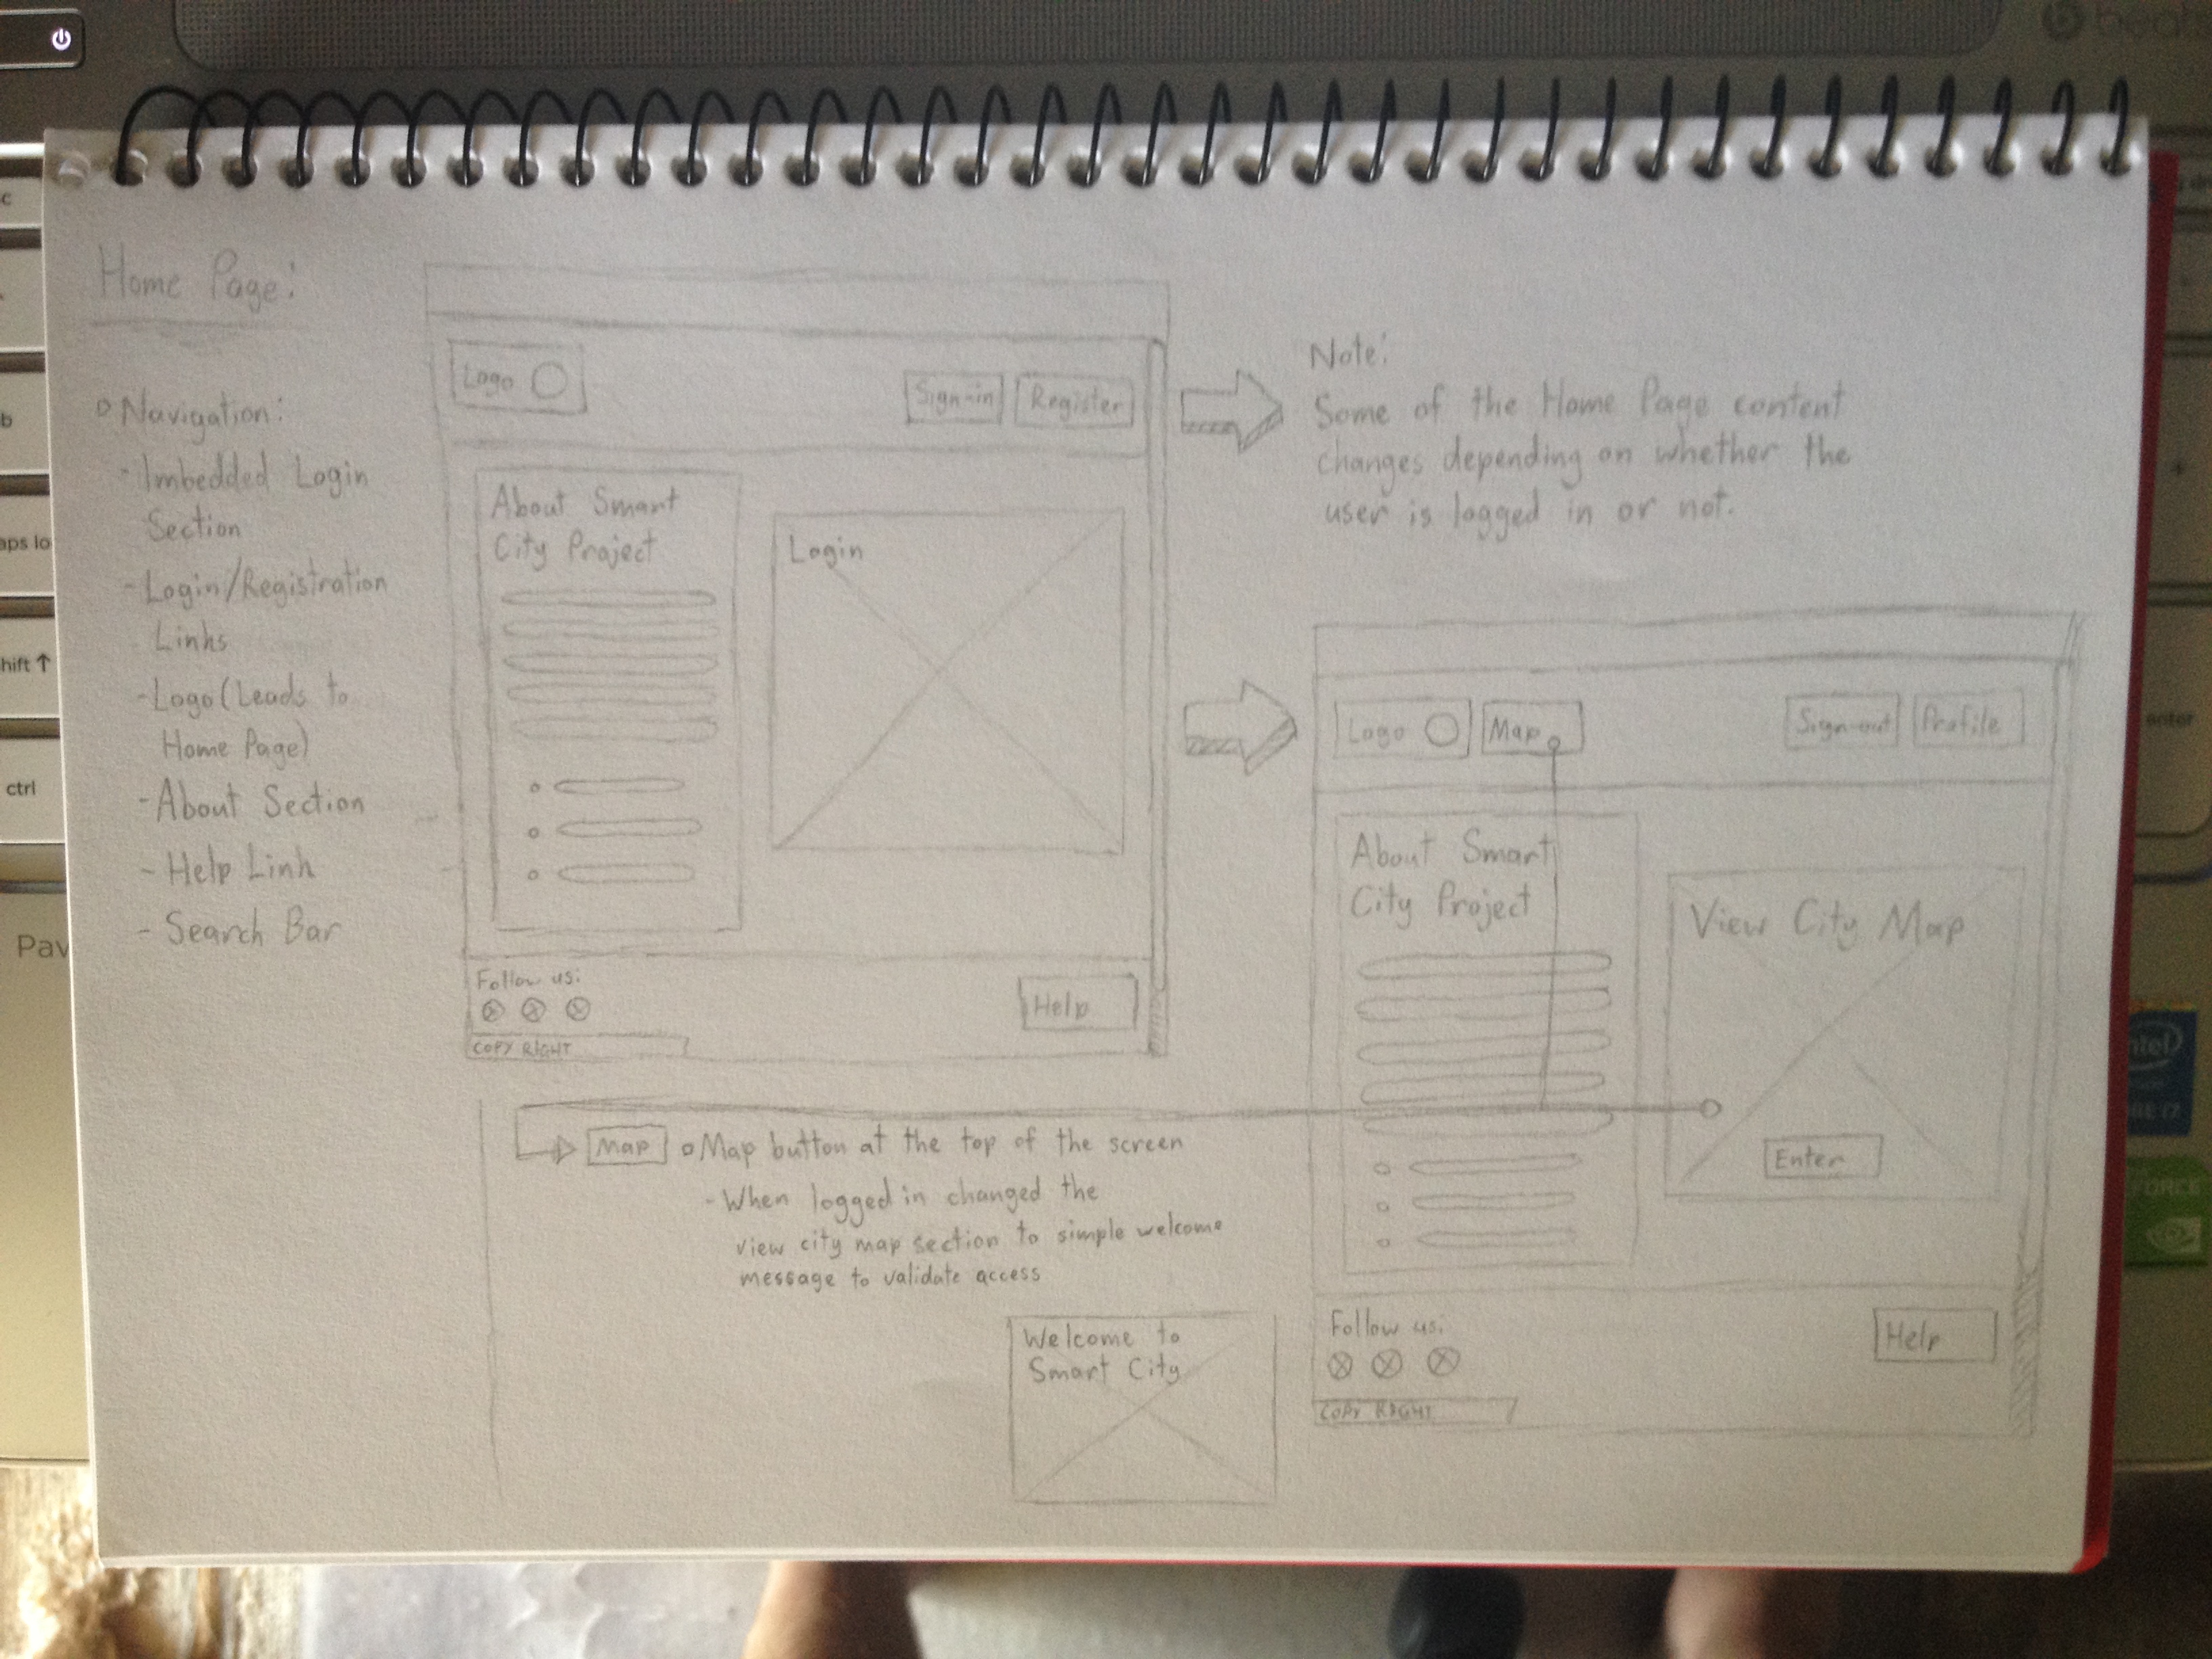 Home Page:
Navigation:
- Imbedded Login
Section
- Login/Registration
Links
- Logo (Leads to
Home Page)
- About Section
- Help Link
- Search Bar
Logo
Sign-in
Register
About Smart
City Project
Login
Follow us:
Help
COPY RIGHT
Note:
Some of the Home Page content
changes depending on whether the
user is logged in or not.
Logo
Map
Sign-out
Profile
About Smart
City Project
View City Map
Enter
Follow us:
Help
COPY RIGHT
Map
Map button at the top of the screen
- When logged in changed the
view city map section to simple welcome
message to validate access
Welcome to
Smart City
c
b
aps lo
hift ↑
ctrl
Pav
enter
intel